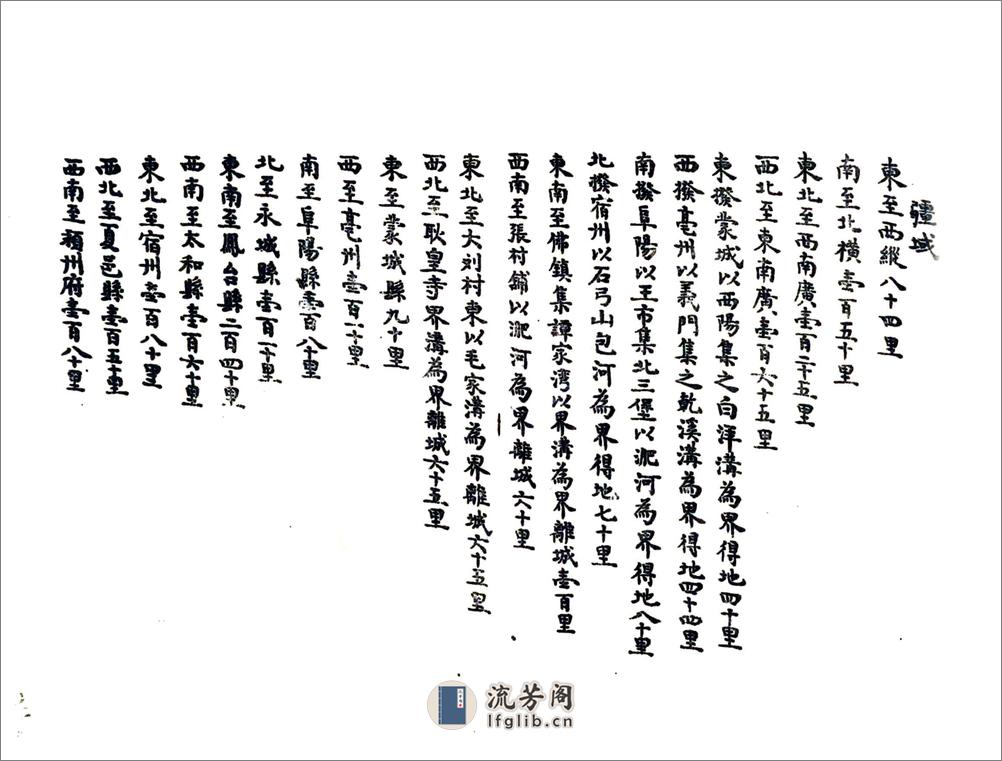 疆域
東至西縱八十四里
南至北横壹百五十里
東北至西南廣壹百二十五里
西北至東南廣壹百六十五里
東撥蒙城以西陽集之白洋溝為界得地四十里
西撥亳州以義門集之乾溪溝為界得地四十四里
南撥阜陽以王市集北三堡以淝河為界得地八十里
北撥宿州以石弓山包河為界得地七十里
東南至佛鎮集譚家湾以界溝為界離城壹百里
西南至張村鋪以淝河為界離城六十里
東北至大刘村東以毛家溝為界離城六十五里
西北至耿皇寺界溝為界離城六十五里
東至蒙城縣九十里
西至亳州壹百一十里
南至阜陽縣壹百八十里
北至永城縣壹百一十里
東南至鳳台縣二百四十里
西南至太和縣壹百六十里
東北至宿州壹百八十里
西北至夏邑縣壹百五十里
西南至潁州府壹百八十里
流芳阁
lfglib.cn